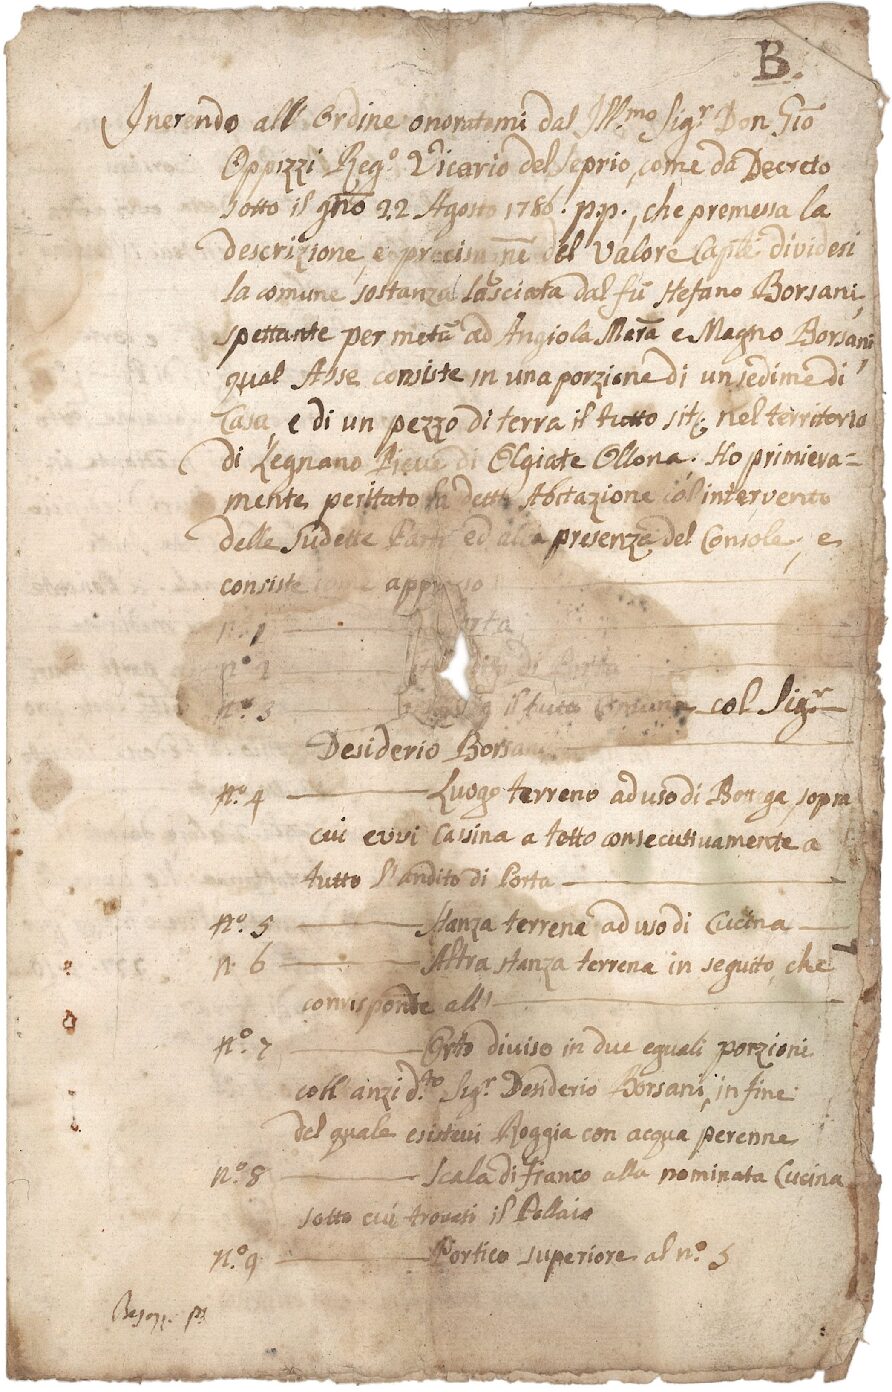 B.
Inerendo all' Ordine onoratomi dal Ill.mo Sig.r Don Gio
Oppizzi Reg.o Vicario del Seprio, come da Decreto
sotto il gno 22 Agosto 1786. p.p., che premessa la
descrizione, e precisamte del valore Caple dividesi
la comune sostanza lasciata dal fù Stefano Borsani,
spettante per metà ad Angiola Mara e Magno Borsani,
qual Asse consiste in una porzione di un sedime di
Casa e di un pezzo di terra il tutto sito nel territorio
di Legnano Pieve di Olgiate Ollona. Ho primiera=
mente peritato la detta Abitazione coll'intervento
delle Sudette Parti ed alla presenza del Console, e
consiste come appresso
n.o 1 Porta
n.o 2 Andito di Porta
n.o 3 il tutto Comune col Sig.r
Desiderio Borsani
n.o 4 Luogo terreno ad uso di Bottega, sopra
cui evvi Cassina a tetto consecutivamente a
tutto l'andito di Porta
n.o 5 Stanza terrena ad uso di Cucina
n. 6 Altra stanza terrena in seguito, che
corrisponde all'
n.o 7 Orto diviso in due eguali porzioni
coll' anzi d.to Sig.r Desiderio Borsani, in fine
del quale esistevi Roggia con acqua perenne
n.o 8 Scala di fianco alla nominata Cucina
sotto cui trovasi il Pollaio
n.o 9 Portico superiore al n.o 5